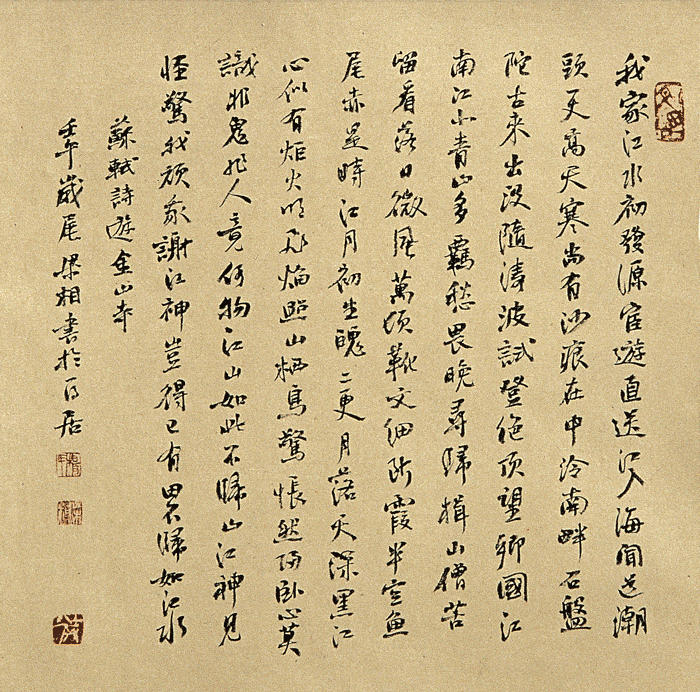 我家江水初發源宦遊直送江入海聞道潮
頭一丈高天寒尚有沙痕在中泠南畔石盤
陀古來出沒隨濤波試登絕頂望鄉國江
南江北青山多羈愁畏晚尋歸楫山僧苦
留看落日微風萬頃靴文細斷霞半空魚
尾赤是時江月初生魄二更月落天深黑江
心似有炬火明飛焰照山栖鳥驚悵然歸臥心莫
識非鬼非人竟何物江山如此不歸山江神見
怪驚我頑我謝江神豈得已有田不歸如江水
蘇軾詩遊金山寺
壬午歲尾梁相書於居